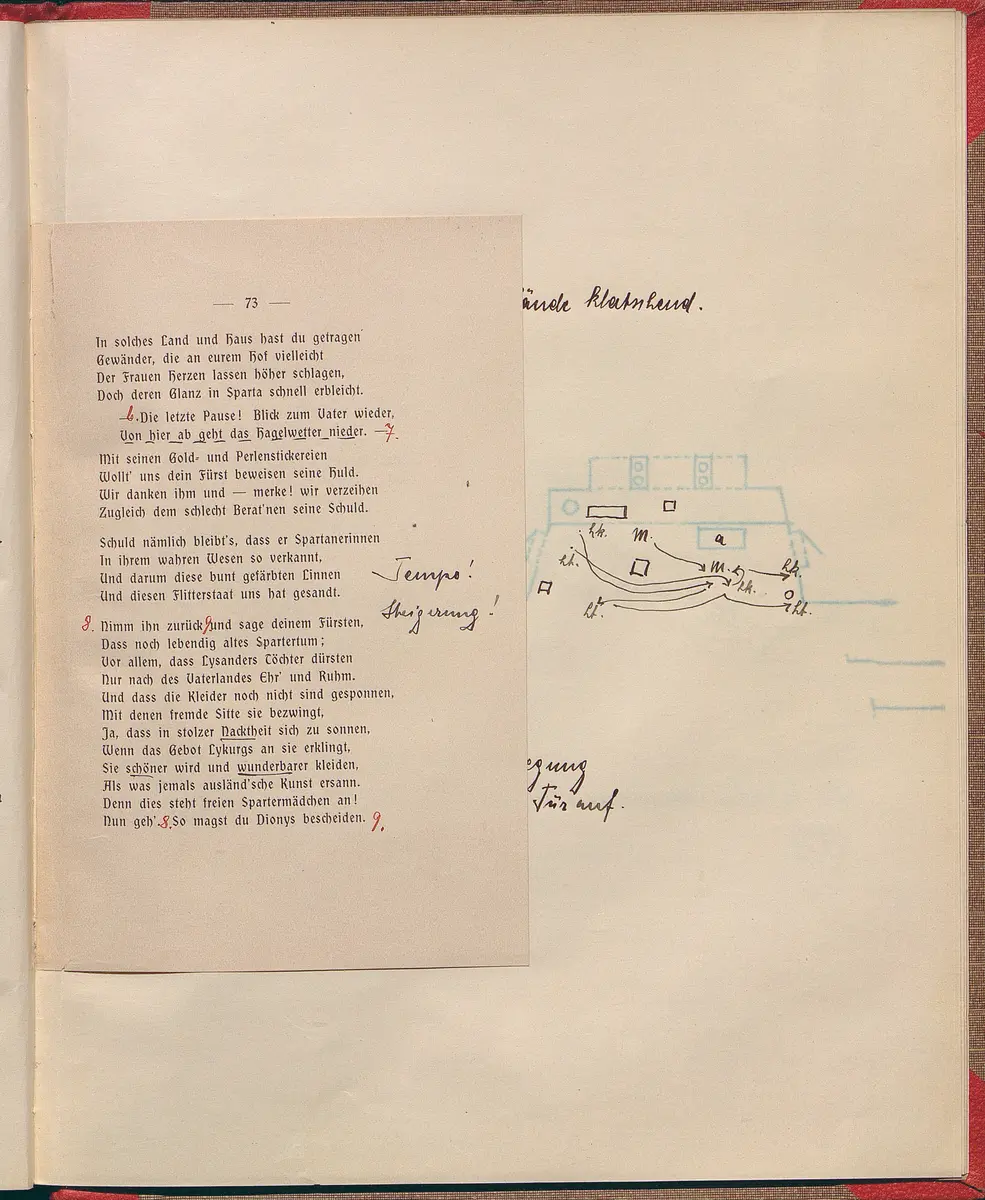 — 73 —
In solches Land und Haus hast du getragen
Gewänder, die an eurem Hof vielleicht
Der Frauen Herzen lassen höher schlagen,
Doch deren Glanz in Sparta schnell erbleicht.
6. Die letzte Pause! Blick zum Vater wieder,
Von hier ab geht das Hagelwetter nieder. — 7.
Mit seinen Gold- und Perlenstickereien
Wollt' uns dein Fürst beweisen seine Huld.
Wir danken ihm und — merke! wir verzeihen
Zugleich dem schlecht Berat'nen seine Schuld.
Schuld nämlich bleibt's, dass er Spartanerinnen
In ihrem wahren Wesen so verkannt,
Und darum diese bunt gefärbten Linnen
Und diesen Flitterstaat uns hat gesandt.
Tempo!
Steigerung!
8. Nimm ihn zurück 9 und sage deinem Fürsten,
Dass noch lebendig altes Spartertum;
Vor allem, dass Lysanders Töchter dürsten
Nur nach des Vaterlandes Ehr' und Ruhm.
Und dass die Kleider noch nicht sind gesponnen,
Mit denen fremde Sitte sie bezwingt,
Ja, dass in stolzer Nacktheit sich zu sonnen,
Wenn das Gebot Lykurgs an sie erklingt,
Sie schöner wird und wunderbarer kleiden,
Als was jemals ausländ'sche Kunst ersann.
Denn dies steht freien Spartermädchen an!
Nun geh'. 8. So magst du Dionys bescheiden. 9.
ände klatschend.
a
hk. m.
ht. m. hk.
hk.
ht. ht.
egung
Tür auf.